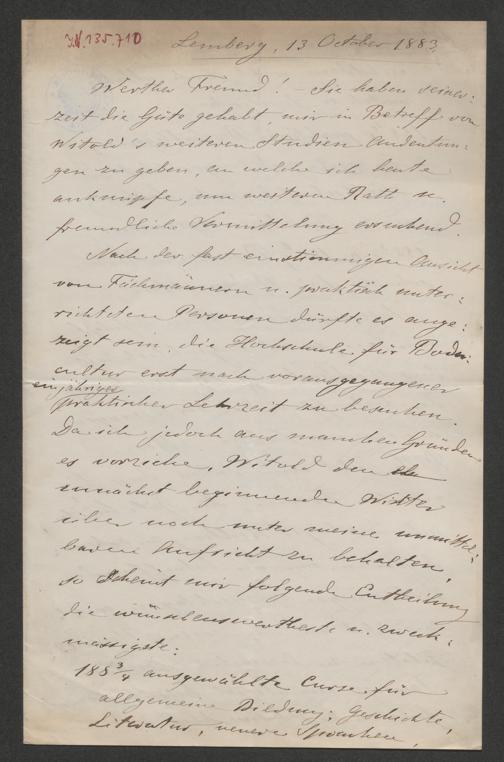 I.N. 135.710
Lemberg, 13 October 1883
Werther Freund! – Sie haben seiner:
zeit die Güte gehabt, mir in Betreff von
Witold's weiteren Studien Andeutun:
gen zu geben, an welche ich heute
anknüpfe, um weiteren Rath u.
freundliche Vermittelung ersuchend.
Nach der fast einstimmigen Ansicht
von Fachmännern u. praktisch unter:
richteten Personen dürfte es ange:
zeigt sein, die Hochschule für Boden:
cultur erst nach vorausgegangener
einjähriger
praktischer Lehrzeit zu besuchen.
Da ich jedoch aus manchen Gründen
es vorziehe, Witold den
zunächst beginnenden Winter
über noch unter meiner unmittel:
baren Aufsicht zu behalten,
so scheint mir folgende Eintheilung
die wünschenswertheste u. zweck:
mässigste:
188 3/4 ausgewählte Curse für
allgemeine Bildung; Geschichte,
Literatur, neuere Sprachen,